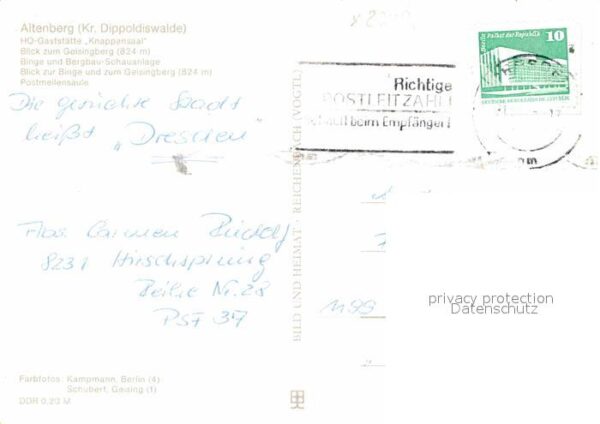 Altenberg (Kr. Dippoldiswalde)
HO-Gaststätte „Knappensaal"
Blick zum Geisingberg (824 m)
Binge und Bergbau-Schauanlage
Blick zur Binge und zum Geisingberg (824 m)
Postmeilensäule
Die gesuchte Stadt
heißt „Dresden"
Carmen
8231 Hirschsprung
Nr. 28
PSF 37
Farbfotos: Kampmann, Berlin (4)
Schubert, Geising (1)
DDR 0,20 M
BILD UND HEIMAT · REICHENBACH (VOGTL)
Richtige
POSTLEITZAHL
beim Empfänger!
Berlin, Palast der Republik
10
1199
privacy protection
Datenschutz